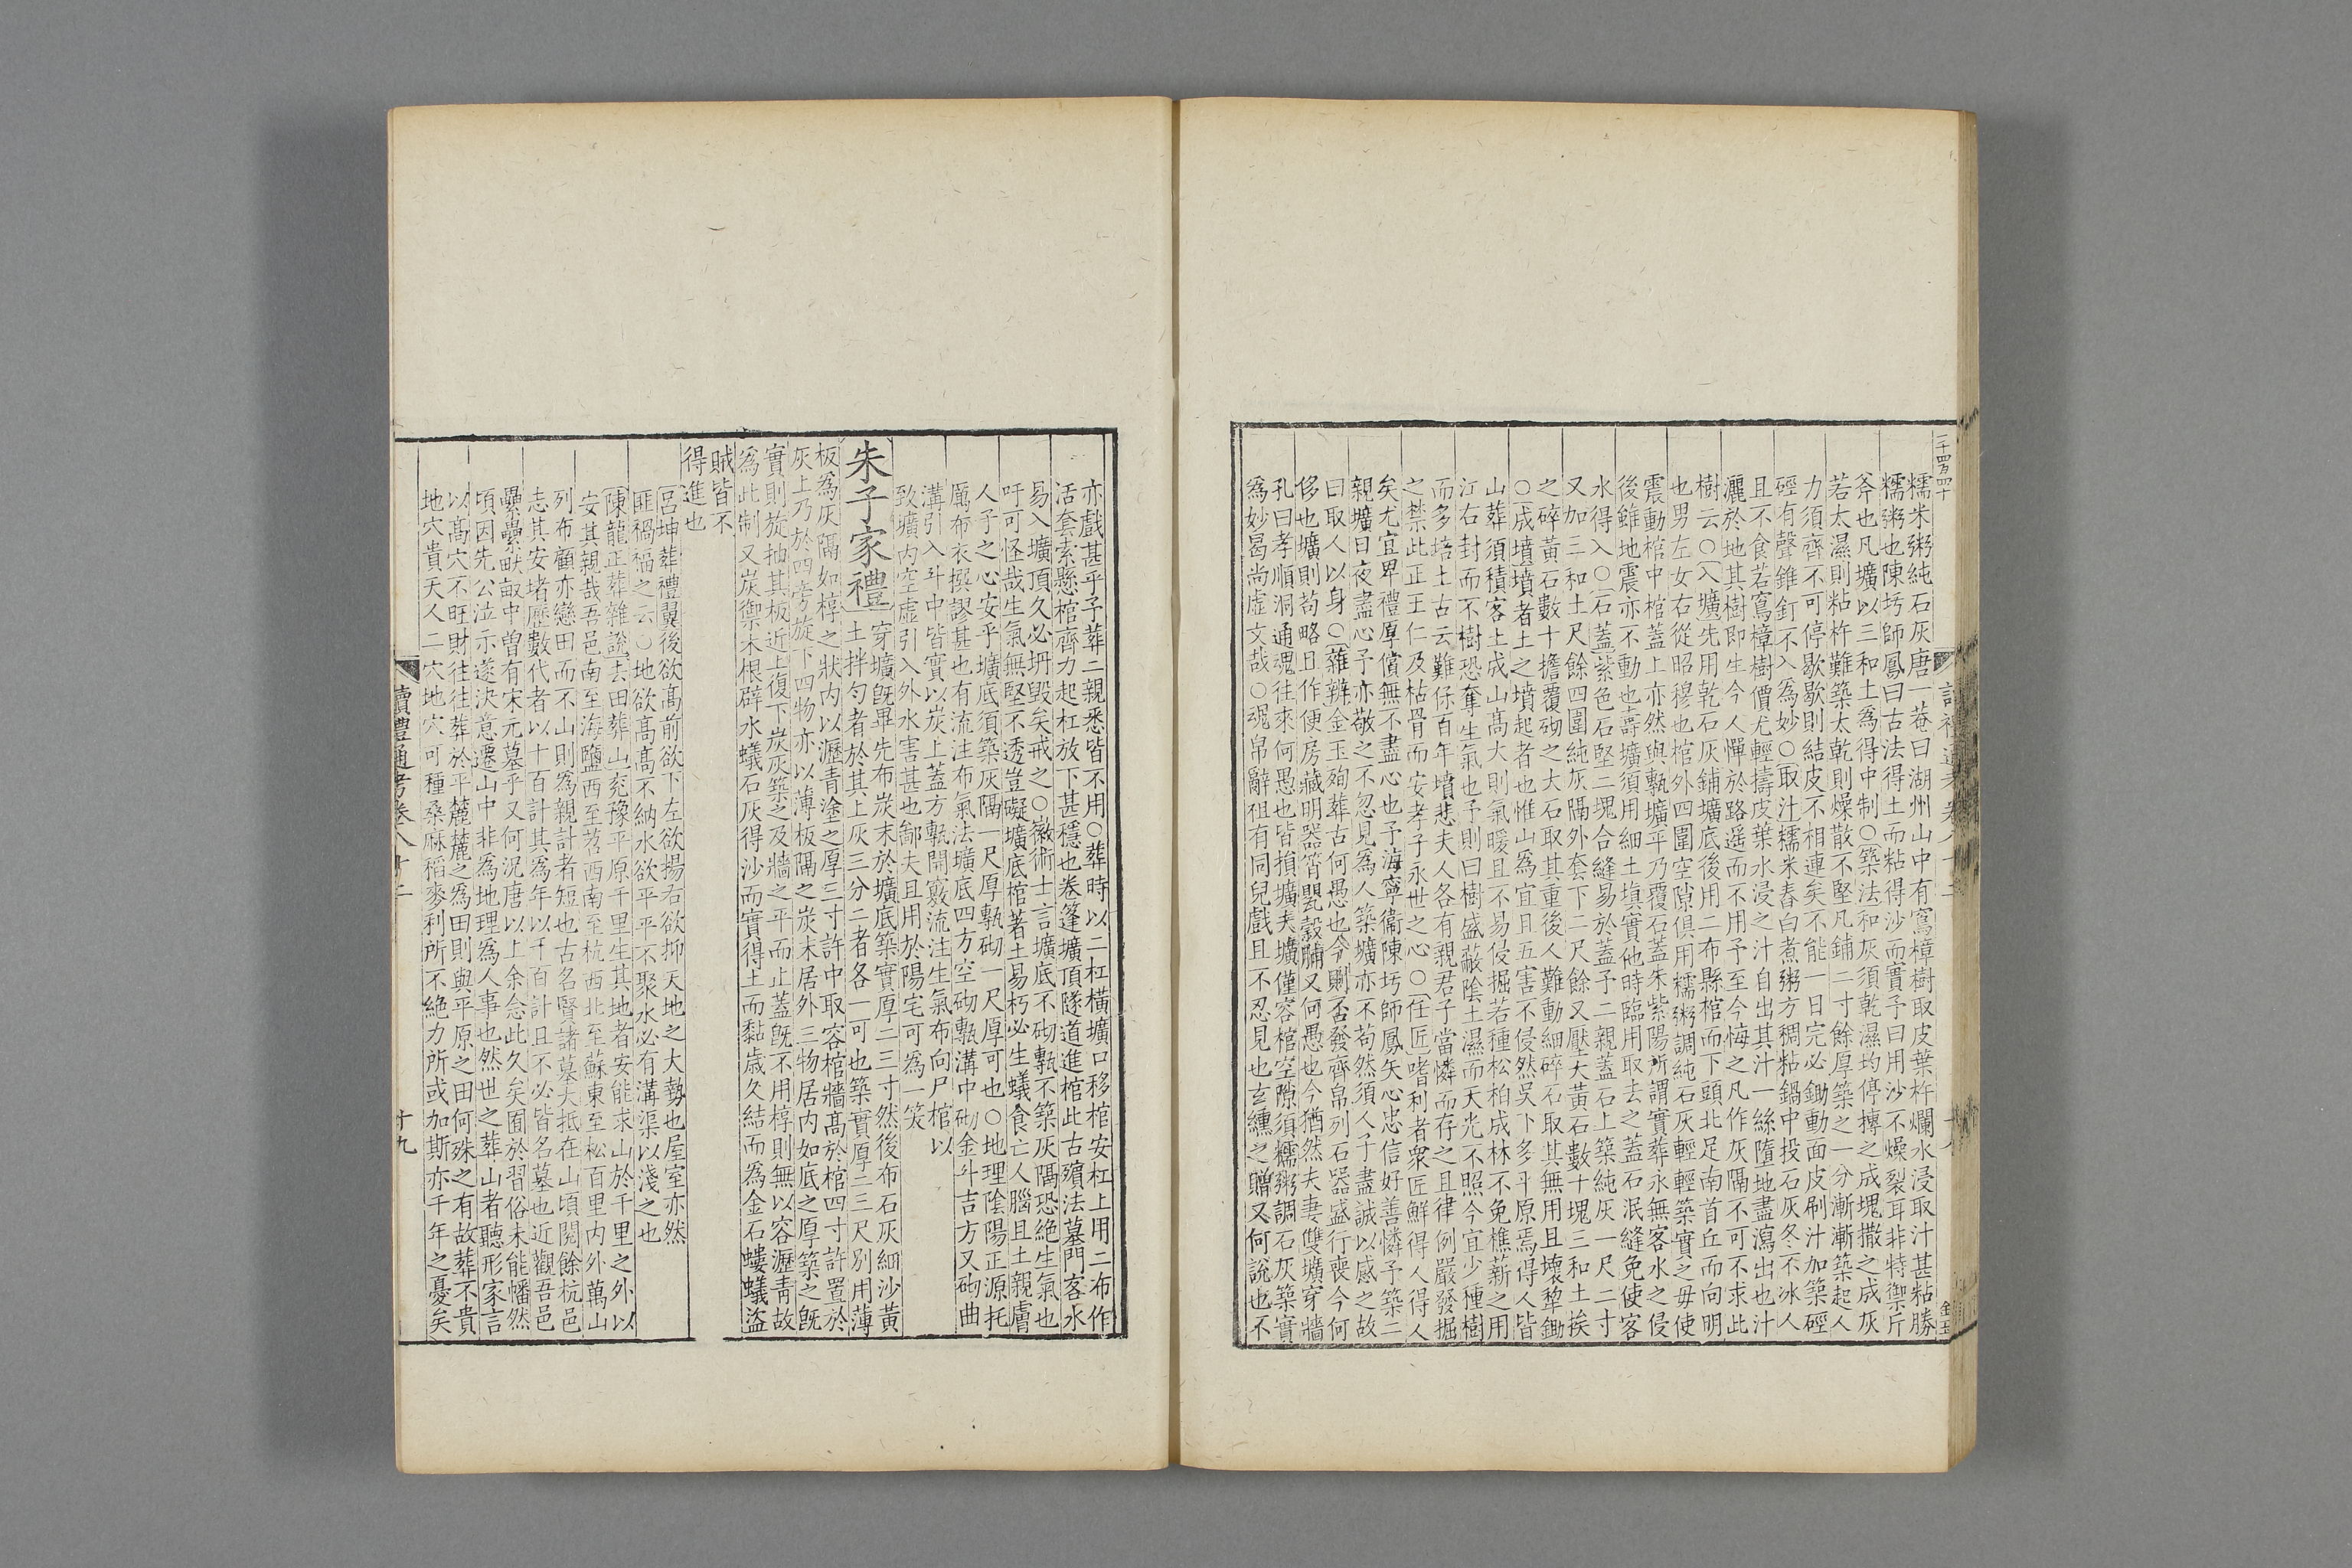 糯米粥純石灰唐一菴曰湖州山中有窵樟樹取皮葉杵爛水浸取汁甚粘勝
糯粥也陳圬師鳳曰古法得土而粘得沙而實予曰用沙不燥裂耳非特禦斤
斧也凡壙以三和土為得中制○築法和灰須乾濕均停摶之成塊撒之成灰
若太濕則粘杵難築太乾則燥散不堅凡鋪二寸餘厚築之一分漸漸築起人
力須齊不可停歇歇則結皮不相連矣不能一日完必鋤動面皮刷汁加築硜
硜有聲錐釘不入為妙○取汁糯米舂白煮粥方稠粘鍋中投石灰冬不冰人
且不食若窵樟樹價尤輕擣皮葉水浸之汁自出其汁一絲墮地盡瀉出也汁
灑於地其樹即生今人憚於路遥而不用予至今悔之凡作灰隔不可不求此
樹云○入壙先用乾石灰鋪壙底後用二布縣棺而下頭北足南首丘而向明
也男左女右從昭穆也棺外四圍空隙俱用糯粥調純石灰輕輕築實之毋使
震動棺中棺蓋上亦然與甎壙平乃覆石蓋朱紫陽所謂實葬永無客水之侵
後雖地震亦不動也壽壙須用細土填實他時臨用取去之蓋石泯縫免使客
水得入○石蓋紫色石堅二塊合縫易於蓋予二親蓋石上築純灰一尺二寸
又加三和土尺餘四圍純灰隔外套下二尺餘又壓大黃石數十塊三和土挨
之碎黃石數十擔覆砌之大石取其重後人難動細碎石取其無用且壞犂鋤
○成墳墳者土之墳起者也惟山為宜且五害不侵然吳下多平原焉得人皆
山葬須積客土成山高大則氣暖且不易侵掘若種松柏成林不免樵薪之用
江右封而不樹恐奪生氣也予則曰樹盛蔽陰土濕而天光不照今宜少種樹
而多培土古云難保百年墳悲夫人各有親君子當憐而存之且律例嚴發掘
之禁此正王仁及枯骨而安孝子永世之心○任匠嗜利者衆匠鮮得人得人
矣尤宜卑禮厚償無不盡心也予海寧衛陳圬師鳳矢心忠信好善憐予築二
親壙日夜盡心予亦敬之不忽見為人築壙亦不苟然須人子盡誠以感之故
曰取人以身○雜辨金玉殉葬古何愚也今則否發齊帛列石器盛行喪今何
侈也壙則苟略且作便房藏明器筲甖穀脯又何愚也今猶然夫妻雙壙穿牆
孔曰孝順洞通魂往來何愚也皆損壙夫壙僅容棺空隙須糯粥調石灰築實
為妙曷尚虛文哉○魂帛辭祖有同兒戲且不忍見也玄纁之贈又何說也不
亦戲甚乎予葬二親悉皆不用○葬時以二杠橫壙口移棺安杠上用二布作
活套索懸棺齊力起杠放下甚穩也卷篷壙頂隧道進棺此古殯法墓門客水
易入壙頂久必坍毀矣戒之○徽術士言壙底不砌甎不築灰隔恐絶生氣也
吁可怪哉生氣無堅不透豈礙壙底棺著土易朽必生蟻食亡人腦且土親膚
人子之心安乎壙底須築灰隔一尺厚甎砌一尺厚可也○地理陰陽正源托
厲布衣撰謬甚也有流注布氣法壙底四方空砌甎溝中砌金斗吉方又砌曲
溝引入斗中皆實以炭上蓋方甎開竅流注生氣布向尸棺以
致壙内空虛引入外水害甚也鄙夫且用於陽宅可為一笑
朱子家禮穿壙旣畢先布炭末於壙底築實厚二三寸然後布石灰細沙黃
土拌勻者於其上灰三分二者各一可也築實厚二三尺別用薄
板為灰隔如椁之狀内以瀝青塗之厚三寸許中取容棺牆高於棺四寸許置於
灰上乃於四旁旋下四物亦以薄板隔之炭末居外三物居内如底之厚築之旣
實則旋抽其板近上復下炭灰築之及牆之平而止蓋旣不用椁則無以容瀝靑故
為此制又炭禦木根辟水蟻石灰得沙而實得土而黏歳久結而為金石螻蟻盜
賊皆不
得進也
呂坤葬禮翼後欲高前欲下左欲揚右欲抑天地之大勢也屋室亦然
匪禍福之云○地欲高高不納水欲平平不聚水必有溝渠以淺之也
陳龍正葬雜說去田葬山兖豫平原千里生其地者安能求山於千里之外以
安其親哉吾邑南至海鹽西至苕西南至杭西北至蘇東至松百里内外萬山
列布顧亦戀田而不山則為親計者短也古名賢諸墓大抵在山頃閱餘杭邑
志其安堵歷數代者以十百計其為年以千百計且不必皆名墓也近觀吾邑
纍纍畎畝中曾有宋元墓乎又何況唐以上余念此久矣囿於習俗未能幡然
頃因先公泣示遂決意遷山中非為地理為人事也然世之葬山者聽形家言
以高穴不旺財往往葬於平麓麓之為田則與平原之田何殊之有故葬不貴
地穴貴天人二穴地穴可種桑麻稻麥利所不絶力所或加斯亦千年之憂矣
讀禮通考卷八十二
十九